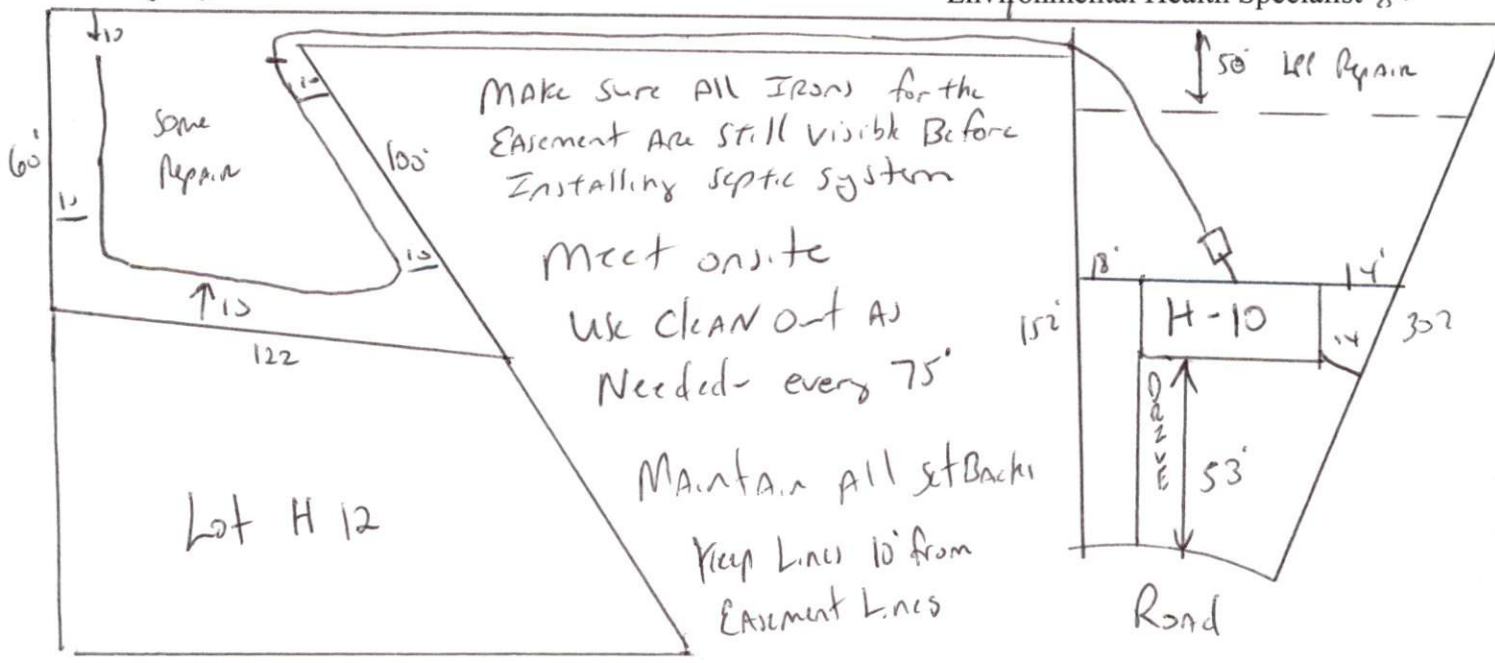 Environmental Health Specialist
10
60'
Some
Repair
10
10
10
10
100'
122
Lot H 12
Make Sure All Irons for the
Easement Are Still Visible Before
Installing Septic System
Meet onsite
Use Clean Out As
Needed - every 75'
Maintain All SetBacks
Keep Lines 10' from
Easement Lines
50' LPP Repair
18'
14'
H-10
14
152'
302
DRIVE
53'
Road